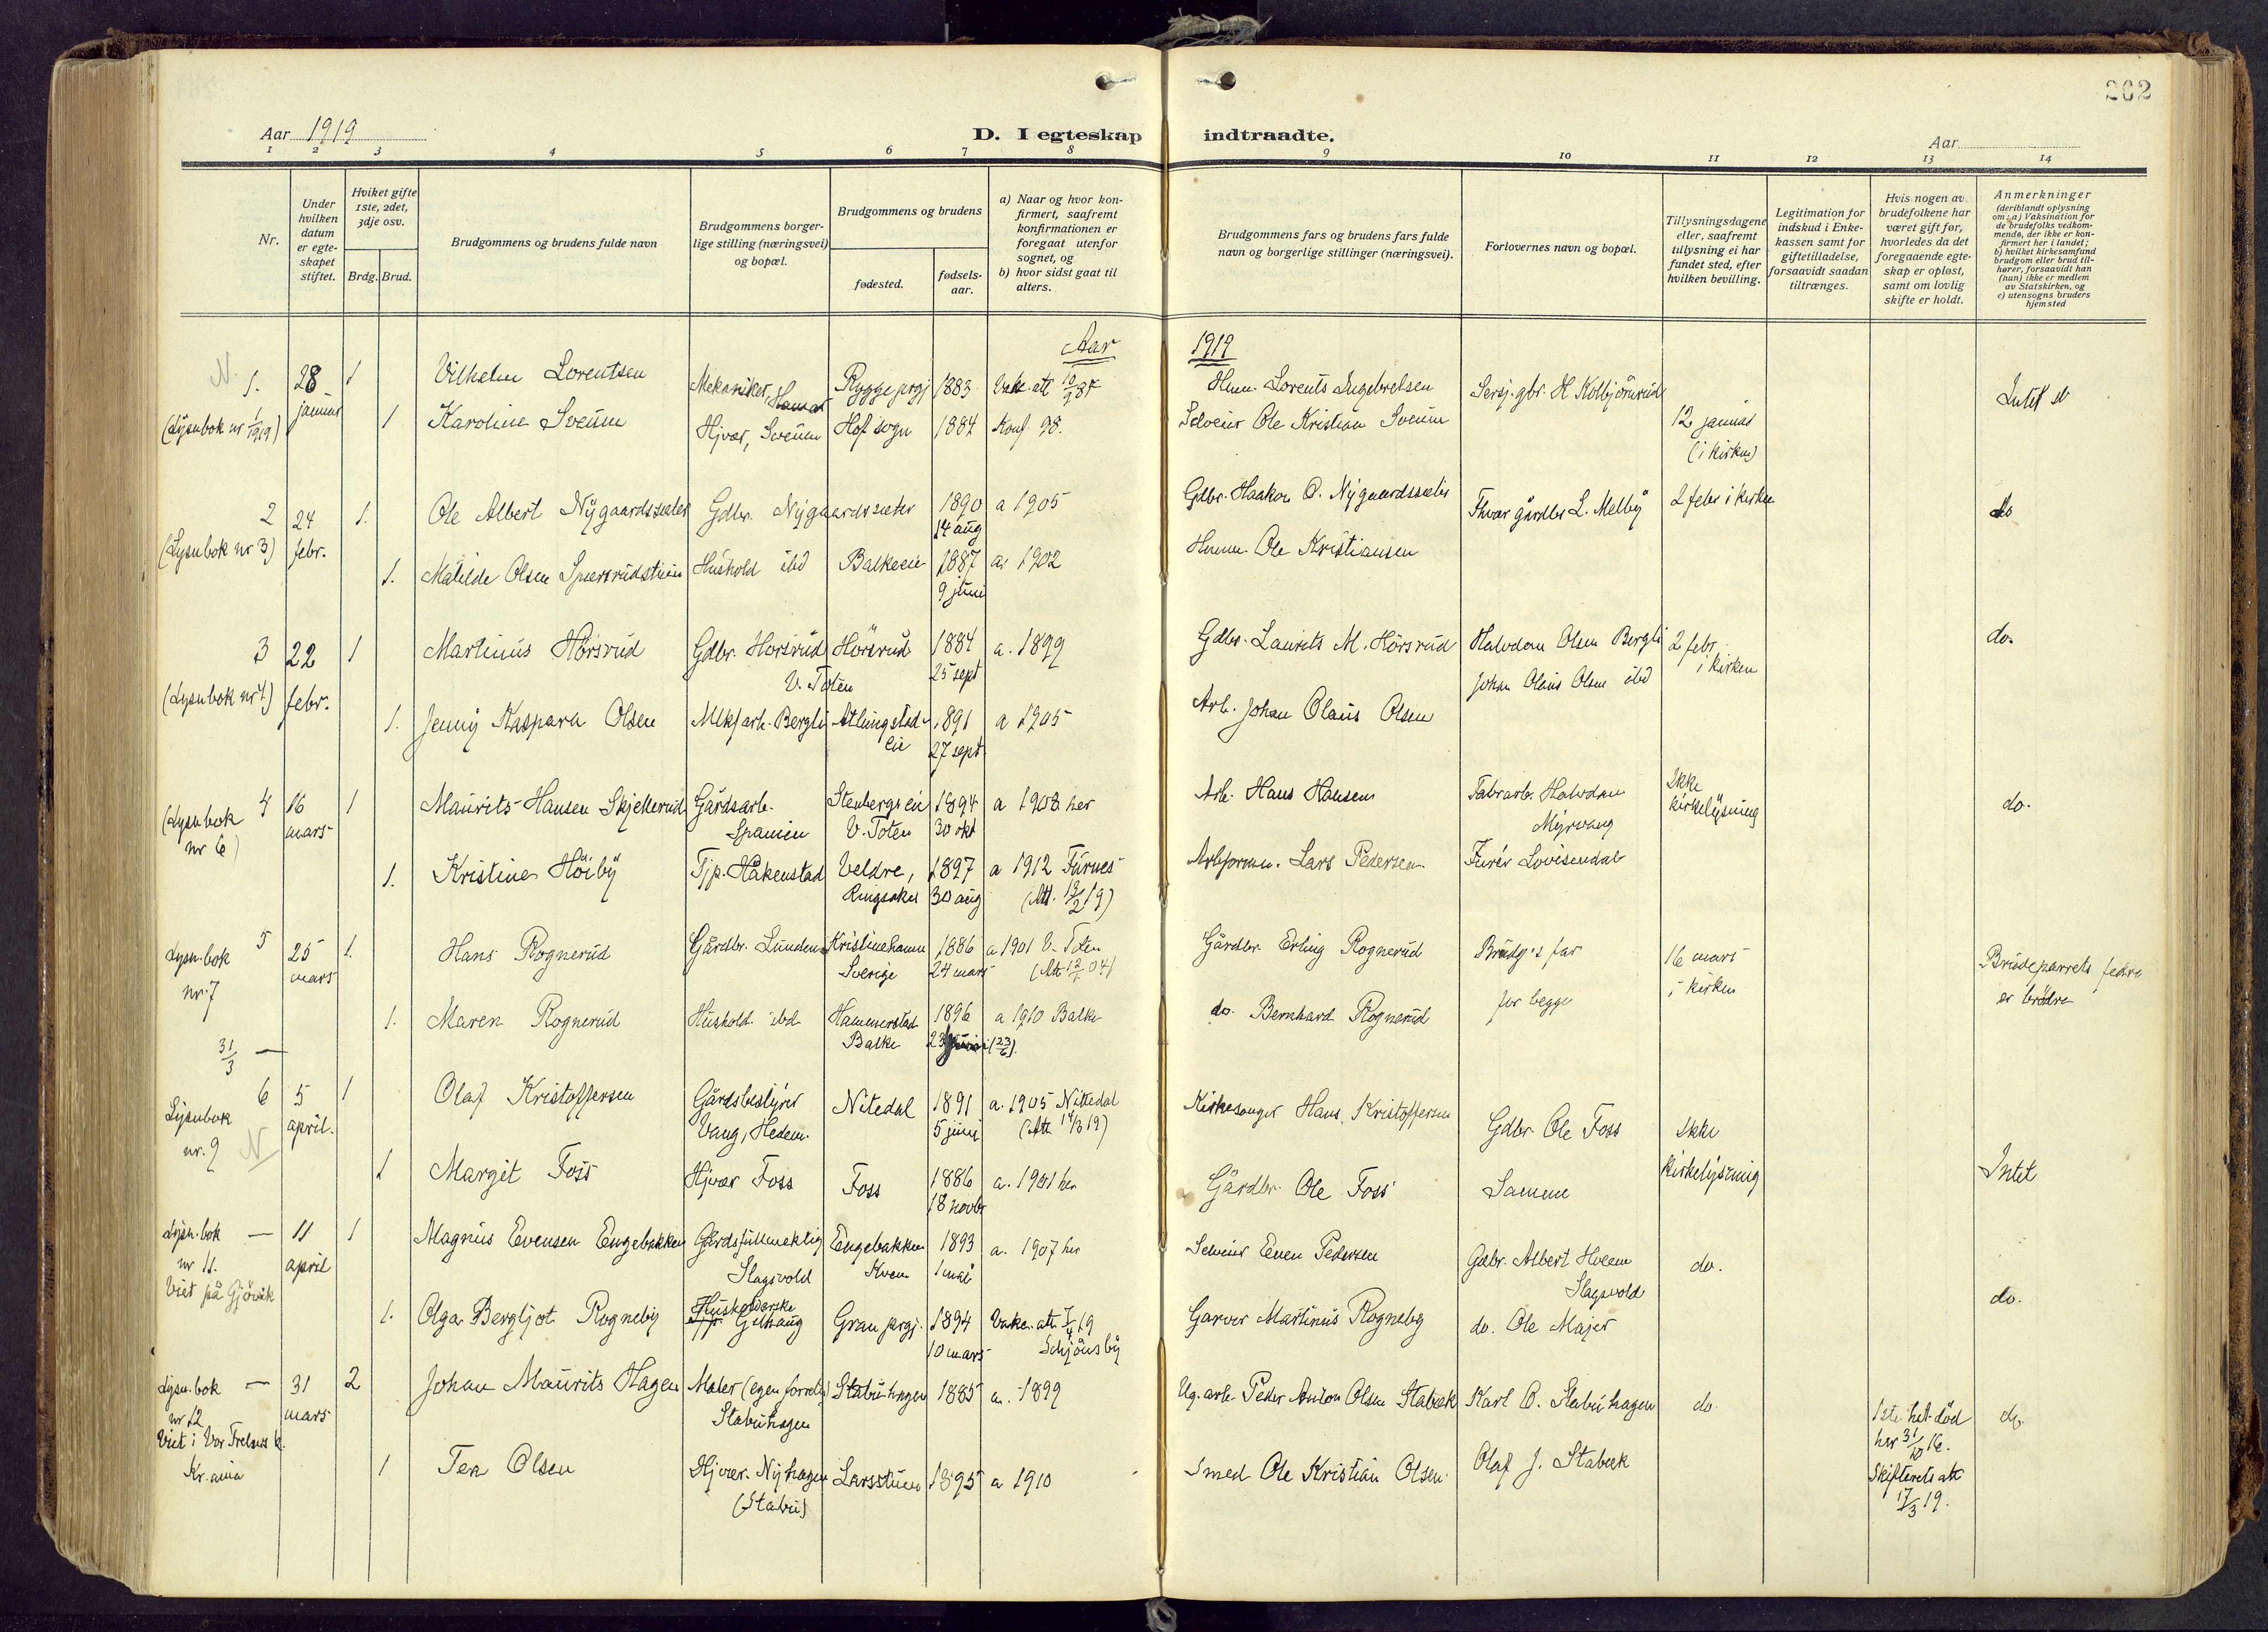 202
Aar 1919
D. I egteskap indtraadte.
Aar
1 2 3 4 5 6 7 8 9 10 11 12 13 14
Nr.
Under hvilken datum er egteskapet stiftet.
Hviket gifte 1ste, 2det, 3dje osv.
Brdg. Brud.
Brudgommens og brudens fulde navn
Brudgommens borgerlige stilling (næringsvei) og bopæl.
Brudgommens og brudens
fødested.
fødselsaar.
a) Naar og hvor konfirmert, saafremt konfirmationen er foregaat utenfor sognet, og
b) hvor sidst gaat til alters.
Brudgommens fars og brudens fars fulde navn og borgerlige stillinger (næringsvei).
Forlovernes navn og bopæl.
Tillysningsdagene eller, saafremt tillysning ei har fundet sted, efter hvilken bevilling.
Legitimation for indskud i Enkekassen samt for giftetilladelse, forsaavidt saadan tiltrænges.
Hvis nogen av brudefolkene har været gift før, hvorledes da det foregaaende egteskap er opløst, samt om lovlig skifte er holdt.
Anmerkninger
(deriblandt oplysning om: a) Vaksination for de brudefolks vedkommende, der ikke er konfirmert her i landet; b) hvilket kirkesamfund brudgom eller brud tilhører, forsaavidt han (hun) ikke er medlem av Statskirken, og c) utensogns bruders hjemsted
Aar 1919
N. 1. 28 januar 1 Vilhelm Lorentsen Mekaniker, Hamar Rygge prgj 1883 Hmn. Lorents Ingebretsen Sersj. gbr. H Kolbjörnrud
(Lysnbok nr 1/1919) 1 Karoline Sveum Hjvær, Sveum Hof sogn 1884 Konf 98. Selveier Ole Kristian Sveum 12 januar (i kirken)
2 24 febr. 1. Ole Albert Nygaardssæter Gdbr. Nygaardssæter 1890 14 aug a 1905 Gdbr. Haakon O. Nygaardssæter gårdbr L. Melby 2 febr i kirken do
(Lysnbok nr 3) 1. Matilde Olsen Hushold ibd Balkeeie 1887 9 juni a. 1902 Ole Kristiansen
3 22 febr. 1 Martinus Hörsrud Gdbr. Horsrud V. Toten Hörsrud 1884 25 sept a. 1899 Gdbr. Laurits M. Hörsrud Halvdan Olsen Bergli 2 febr. i kirken do.
(Lysnbok nr 4) 1. Jenny Kaspara Olsen Bergli eie 1891 27 sept a 1905 Arb. Johan Olaus Olsen Johan Olaus Olsen ibd
4 16 mars 1 Maurits Hansen Skjellerud Gårdsarb. Spanien Stenbergs eie V. Toten 1894 30 okt a 1908 her Arb. Hans Hansen Fabrarb. Halvdan Myrvang Ikke kirkelysning do.
(Lysnbok nr 6) 1. Kristine Höiby Tjp. Håkenstad Veldre, Ringsaker 1897 30 aug a 1912 Furnes Lars Pedersen Furér Lovisendal
5 25 mars 1. Hans Rognerud Gårdbr. Lunden Kristinehamn Sverige 1886 24 mars a 1901 V. Toten Gårdbr. Erling Rognerud Brudg's far 16 mars i kirken Brudeparrets fedre er brødre
Lysn.bok nr. 7 1. Maren Rognerud Hushold. ibd Hammerstad Balke 1896 23 (23/6). a 1910 Balke do. Bernhard Rognerud for begge
31/3 —
6 5 april. 1 Olaf Kristoffersen Gårdsbestyrer Vang, Hedem. Nitedal 1891 5 juni a. 1905 Nittedal (Att 14/3 19) Kirkesanger Hans Kristoffersen Gdbr. Ole Foss Ikke kirkelysning Intet
Lysnbok nr. 9 N 1 Margit Foss Hjvær Foss Foss 1886 18 novbr a. 1901 her Gårdbr. Ole Foss Samme
Lysn.bok nr 11. — 11 april 1 Magnus Evensen Engebakken Gårdsfullmektig Slagsvold Engebakken Kvem 1893 1 mai a. 1907 her Selveier Even Pedersen Gdbr. Albert Hveem Slagsvold do. do.
Viet på Gjövik 1. Olga Bergljot Rogneby Husholderske Gihaug Gran prgj. 1894 10 mars att. 7/4 19 Schjönsby Garver Martinus Rogneby do. Ole Majer
Lysn.bok nr 12 — 31 mars 2 Johan Maurits Hagen Maler (egen forretn) Stabuhagen Stabuhagen 1885 a. 1899 Peder Anton Olsen Stabæk Karl O. Stabuhagen do 1ste het. död her 31/10 16. Skifterets att 17/3 19. do.
Viet i Vor Frelsers k. Kr.ania 1 Tea Olsen Hjvær. Nyhagen (Stabu) Larsstuen 1895 a 1910 Smed Ole Kristian Olsen Olaf J. Stabæk